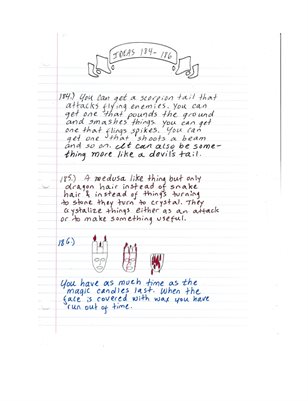 IDEAS 184-186
184.) You can get a scorpion tail that
attacks flying enemies. You can
get one that pounds the ground
and smashes things. You can get
one that flings spikes. You can
get one that shoots a beam
and so on. It can also be some-
thing more like a devil's tail.
185.) A medusa like thing but only
dragon hair instead of snake
hair & instead of things turning
to stone they turn to crystal. They
crystalize things either as an attack
or to make something useful.
186.)
You have as much time as the
magic candles last. When the
face is covered with wax you have
run out of time.